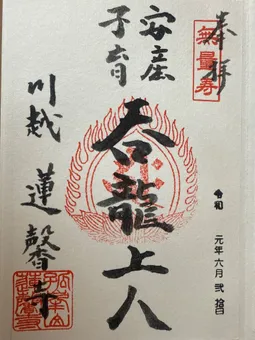 奉拝
無量寿
令和 元年六月弐拾日
安産
子育
呑龍上人
川越 蓮馨寺